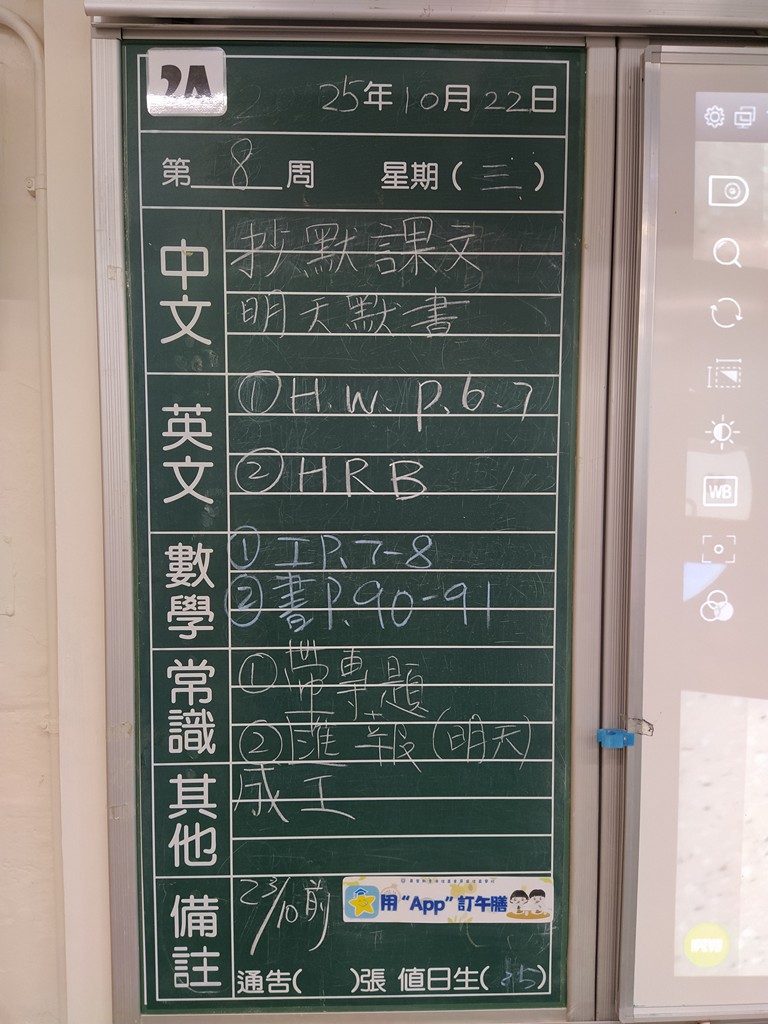 2A
25年10月22日
第8周 星期(三)
中文
抄默課文
明天默書
英文
①H.W. p.6.7
②HRB
數學
①工P.7-8
②書P.90-91
常識
①帶專題
②匯報(明天)
其他
成工
備註
23/10前
用“App”訂午膳
通告( )張 值日生( )
WB